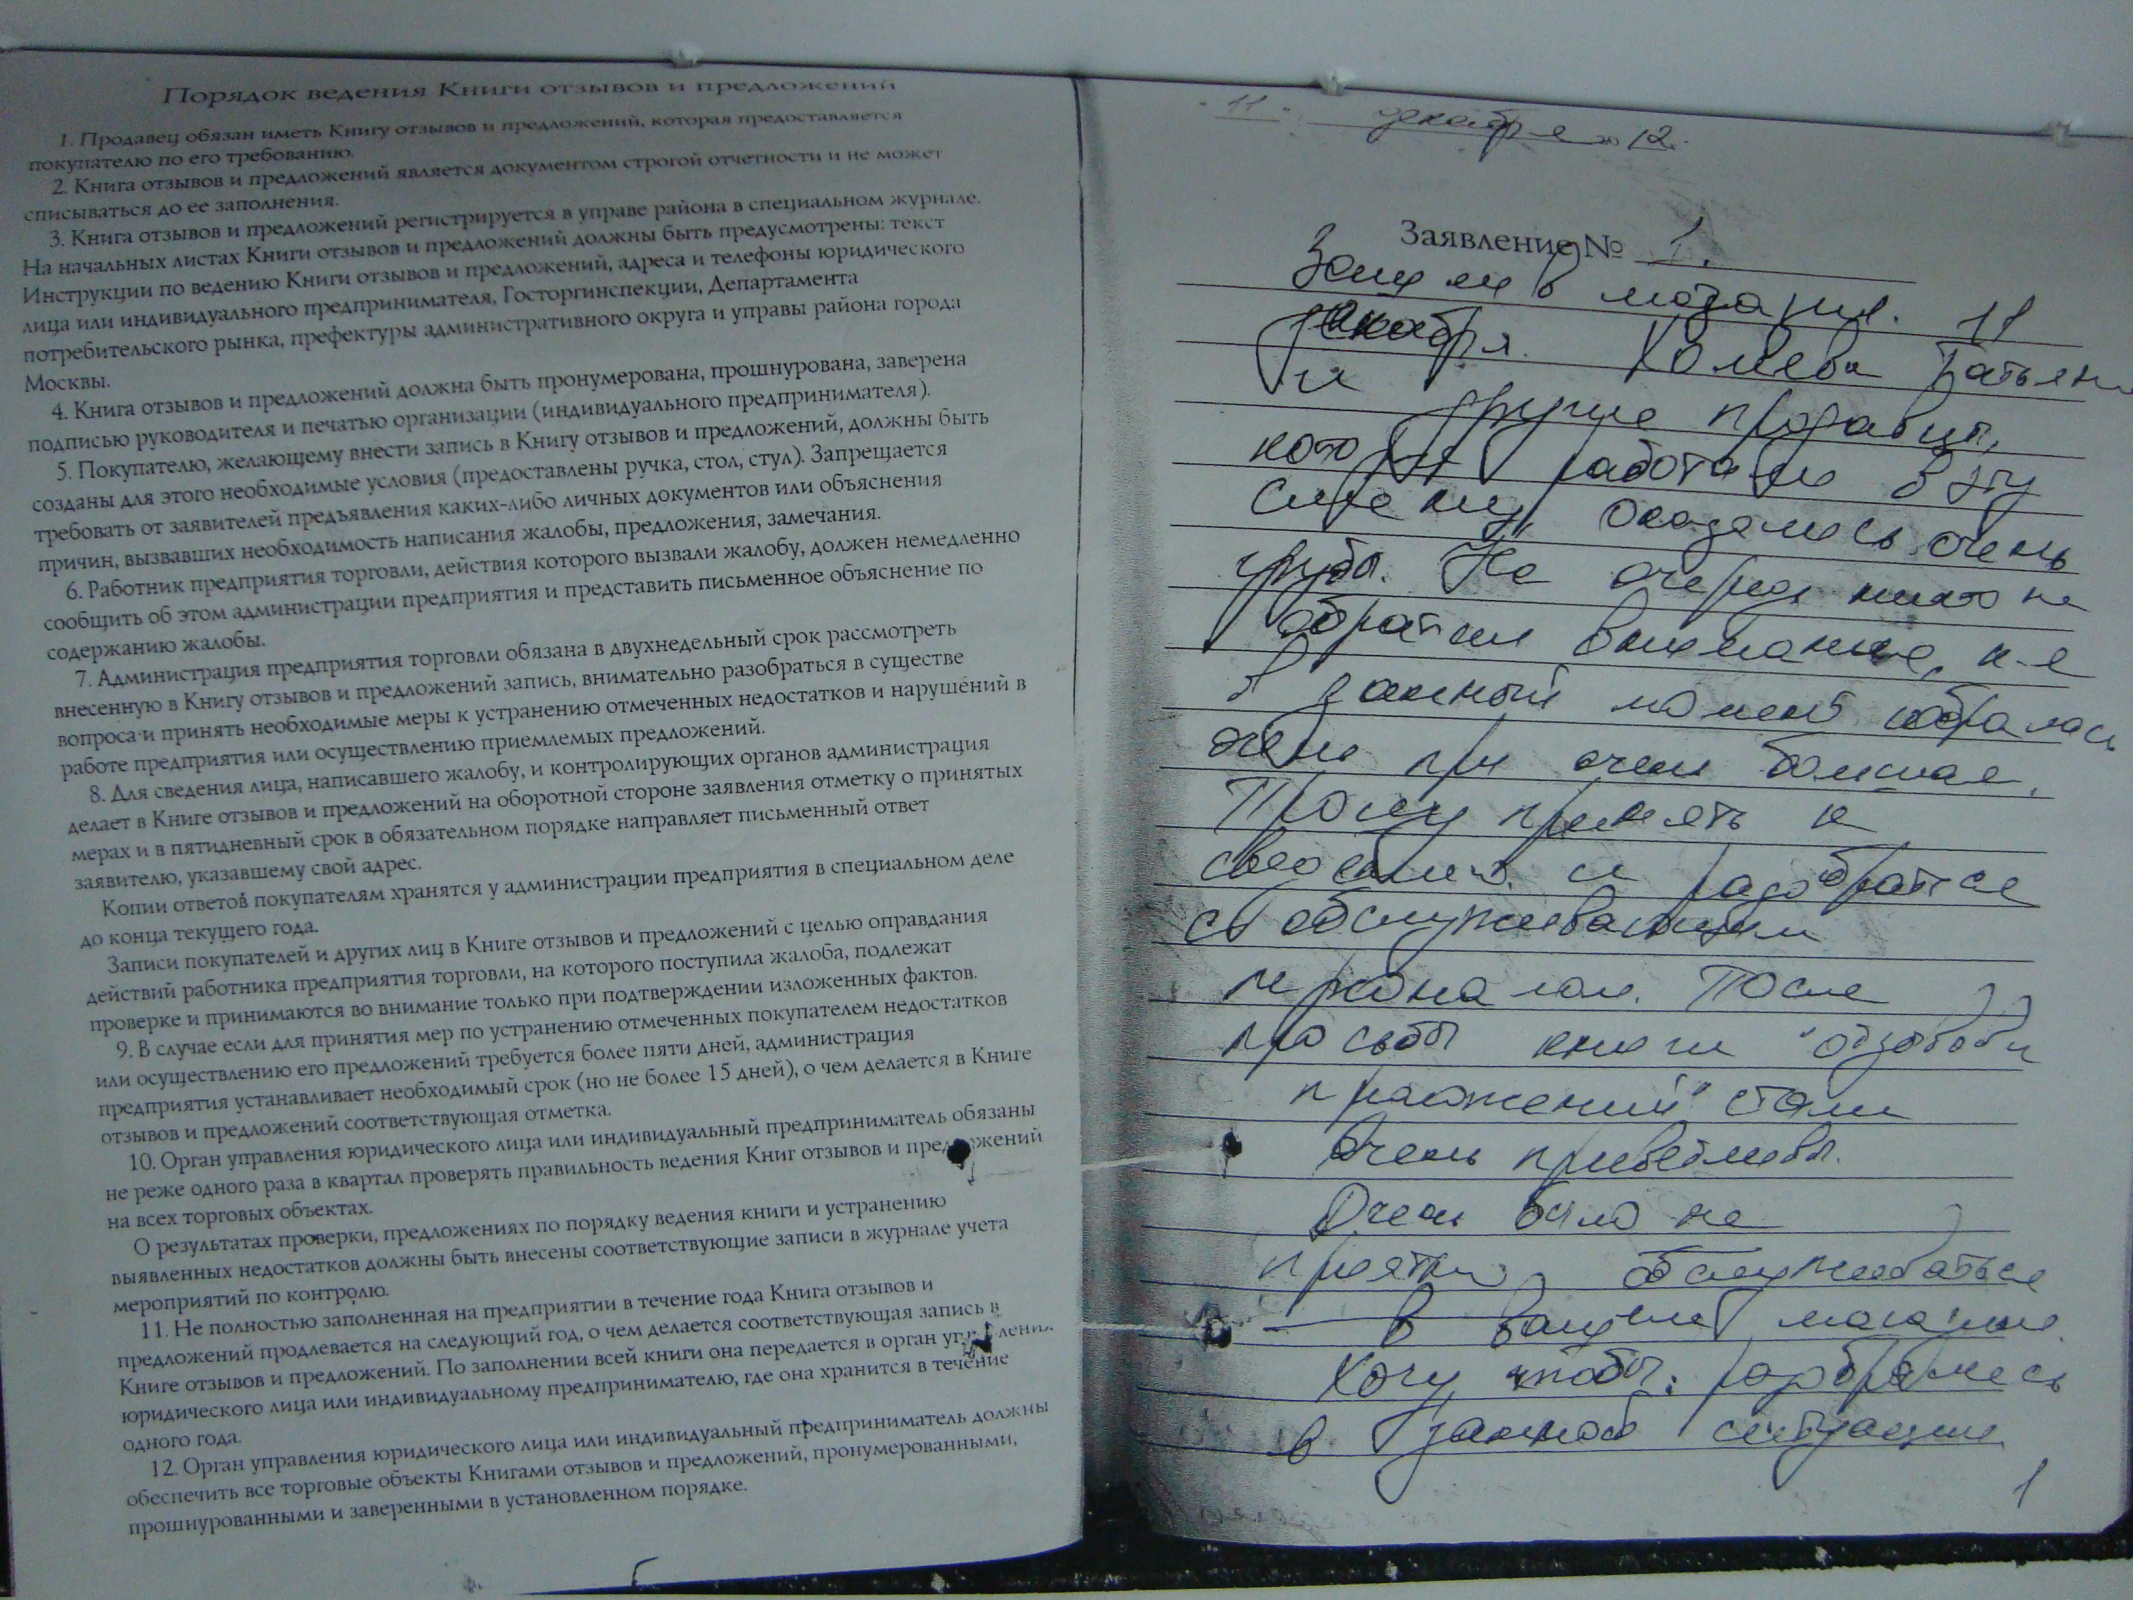 Порядок ведения Книги отзывов и предложений
1. Продавец обязан иметь Книгу отзывов и предложений, которая предоставляется
покупателю по его требованию.
2. Книга отзывов и предложений является документом строгой отчетности и не может
списываться до ее заполнения.
3. Книга отзывов и предложений регистрируется в управе района в специальном журнале.
На начальных листах Книги отзывов и предложений должны быть предусмотрены: текст
Инструкции по ведению Книги отзывов и предложений, адреса и телефоны юридического
лица или индивидуального предпринимателя, Госторгинспекции, Департамента
потребительского рынка, префектуры административного округа и управы района города
Москвы.
4. Книга отзывов и предложений должна быть пронумерована, прошнурована, заверена
подписью руководителя и печатью организации (индивидуального предпринимателя).
5. Покупателю, желающему внести запись в Книгу отзывов и предложений, должны быть
созданы для этого необходимые условия (предоставлены ручка, стол, стул). Запрещается
требовать от заявителей предъявления каких-либо личных документов или объяснения
причин, вызвавших необходимость написания жалобы, предложения, замечания.
6. Работник предприятия торговли, действия которого вызвали жалобу, должен немедленно
сообщить об этом администрации предприятия и представить письменное объяснение по
содержанию жалобы.
7. Администрация предприятия торговли обязана в двухнедельный срок рассмотреть
внесенную в Книгу отзывов и предложений запись, внимательно разобраться в существе
вопроса и принять необходимые меры к устранению отмеченных недостатков и нарушений в
работе предприятия или осуществлению приемлемых предложений.
8. Для сведения лица, написавшего жалобу, и контролирующих органов администрация
делает в Книге отзывов и предложений на оборотной стороне заявления отметку о принятых
мерах и в пятидневный срок в обязательном порядке направляет письменный ответ
заявителю, указавшему свой адрес.
Копии ответов покупателям хранятся у администрации предприятия в специальном деле
до конца текущего года.
Записи покупателей и других лиц в Книге отзывов и предложений с целью оправдания
действий работника предприятия торговли, на которого поступила жалоба, подлежат
проверке и принимаются во внимание только при подтверждении изложенных фактов.
9. В случае если для принятия мер по устранению отмеченных покупателем недостатков
или осуществлению его предложений требуется более пяти дней, администрация
предприятия устанавливает необходимый срок (но не более 15 дней), о чем делается в Книге
отзывов и предложений соответствующая отметка.
10. Орган управления юридического лица или индивидуальный предприниматель обязаны
не реже одного раза в квартал проверять правильность ведения Книг отзывов и предложений
на всех торговых объектах.
О результатах проверки, предложениях по порядку ведения книги и устранению
выявленных недостатков должны быть внесены соответствующие записи в журнале учета
мероприятий по контролю.
11. Не полностью заполненная на предприятии в течение года Книга отзывов и
предложений продлевается на следующий год, о чем делается соответствующая запись в
Книге отзывов и предложений. По заполнении всей книги она передается в орган управления
юридического лица или индивидуальному предпринимателю, где она хранится в течение
одного года.
12. Орган управления юридического лица или индивидуальный предприниматель должны
обеспечить все торговые объекты Книгами отзывов и предложений, пронумерованными,
прошнурованными и заверенными в установленном порядке.
"11" декабря 12.
Заявление № 1.
Зашли в магазин. 11
декабря. Татьяна
и другие продавцы,
которые работали в эту
смену, оказались очень
грубы. На очередь никто не
обратил внимание, к-я
в данный момент собралась
очень большая.
Прошу принять к
сведению и разобраться
с обслуживающим
персоналом. После
просьбы книги "отзовов и
предложений" стали
очень приветливы.
Очень было не
приятно обслуживаться
в вашем магазине.
Хочу чтобы разобрались
в данной ситуации
1